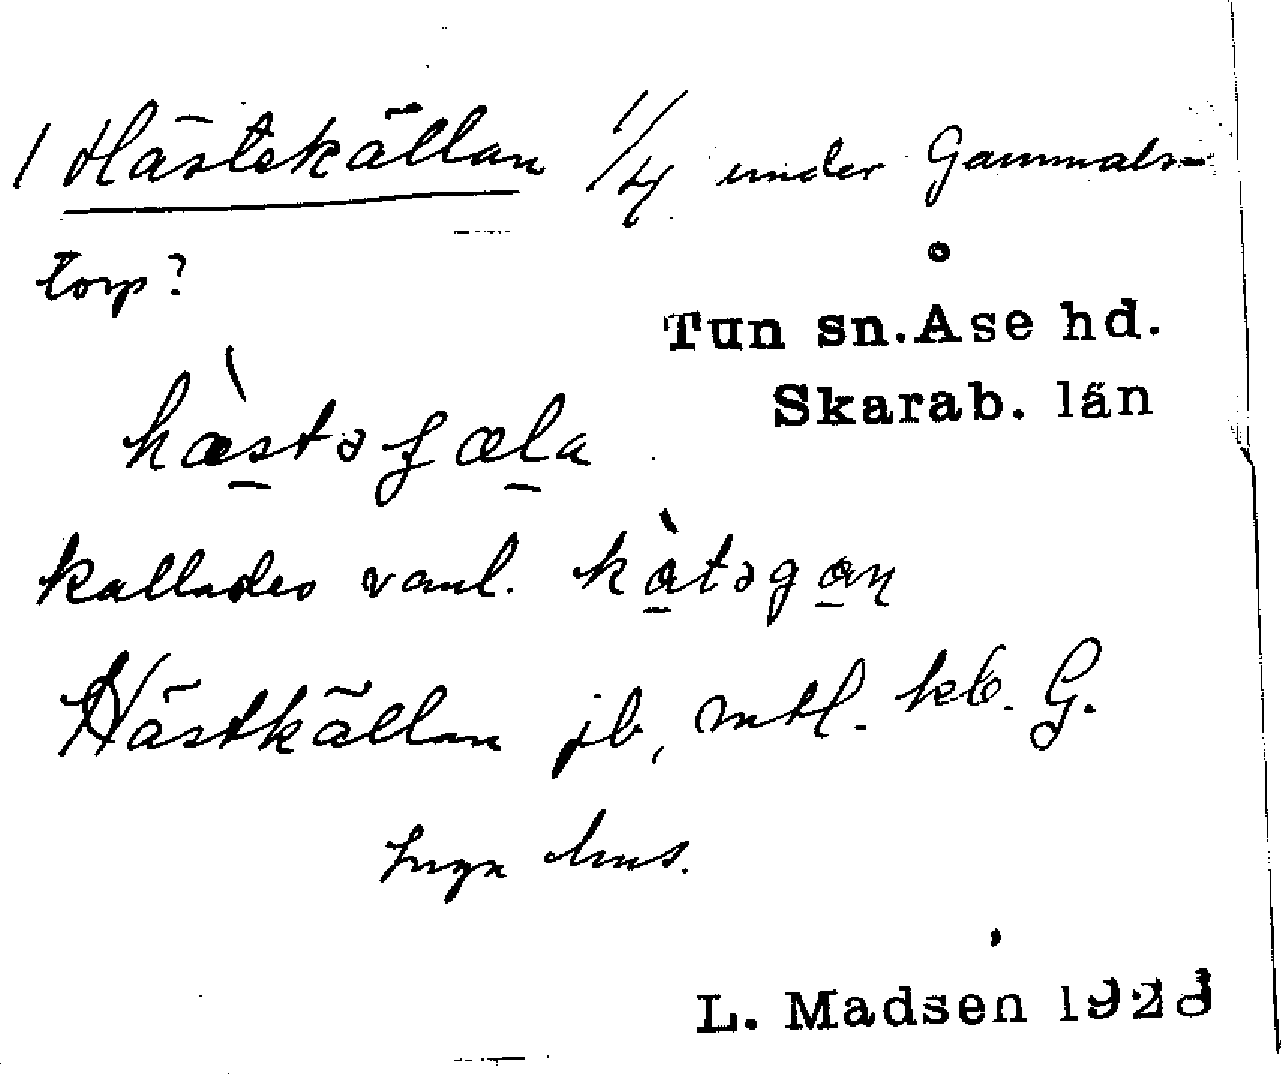 1 Hästekällan 1/4 under Gammals-
torp?
Tun sn. Åse hd.
Skarab. län
hæ̀stəɟæla
kallades vanl. kàtəgaɳ
Hästkällan jb, mtl. kb. G.
Inga hus.
L. Madsen 1928